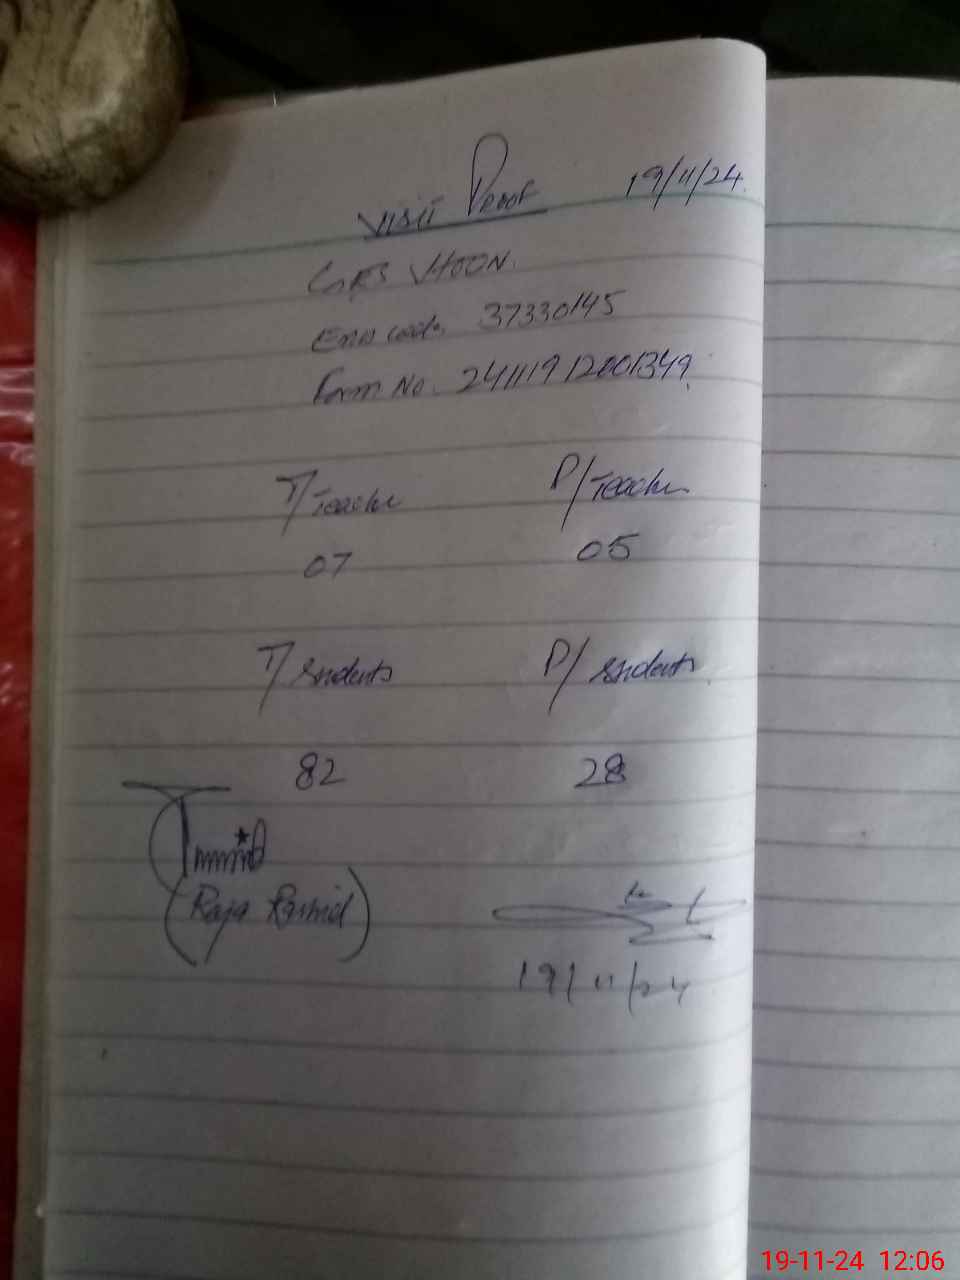 Visit Proof 19/11/24
EMIS code. 37330145
Form No. 24111912001349
T/Teacher P/Teacher
07 05
T/Students P/Students
82 28
(Raja Rashid)
19/11/24
19-11-24 12:06